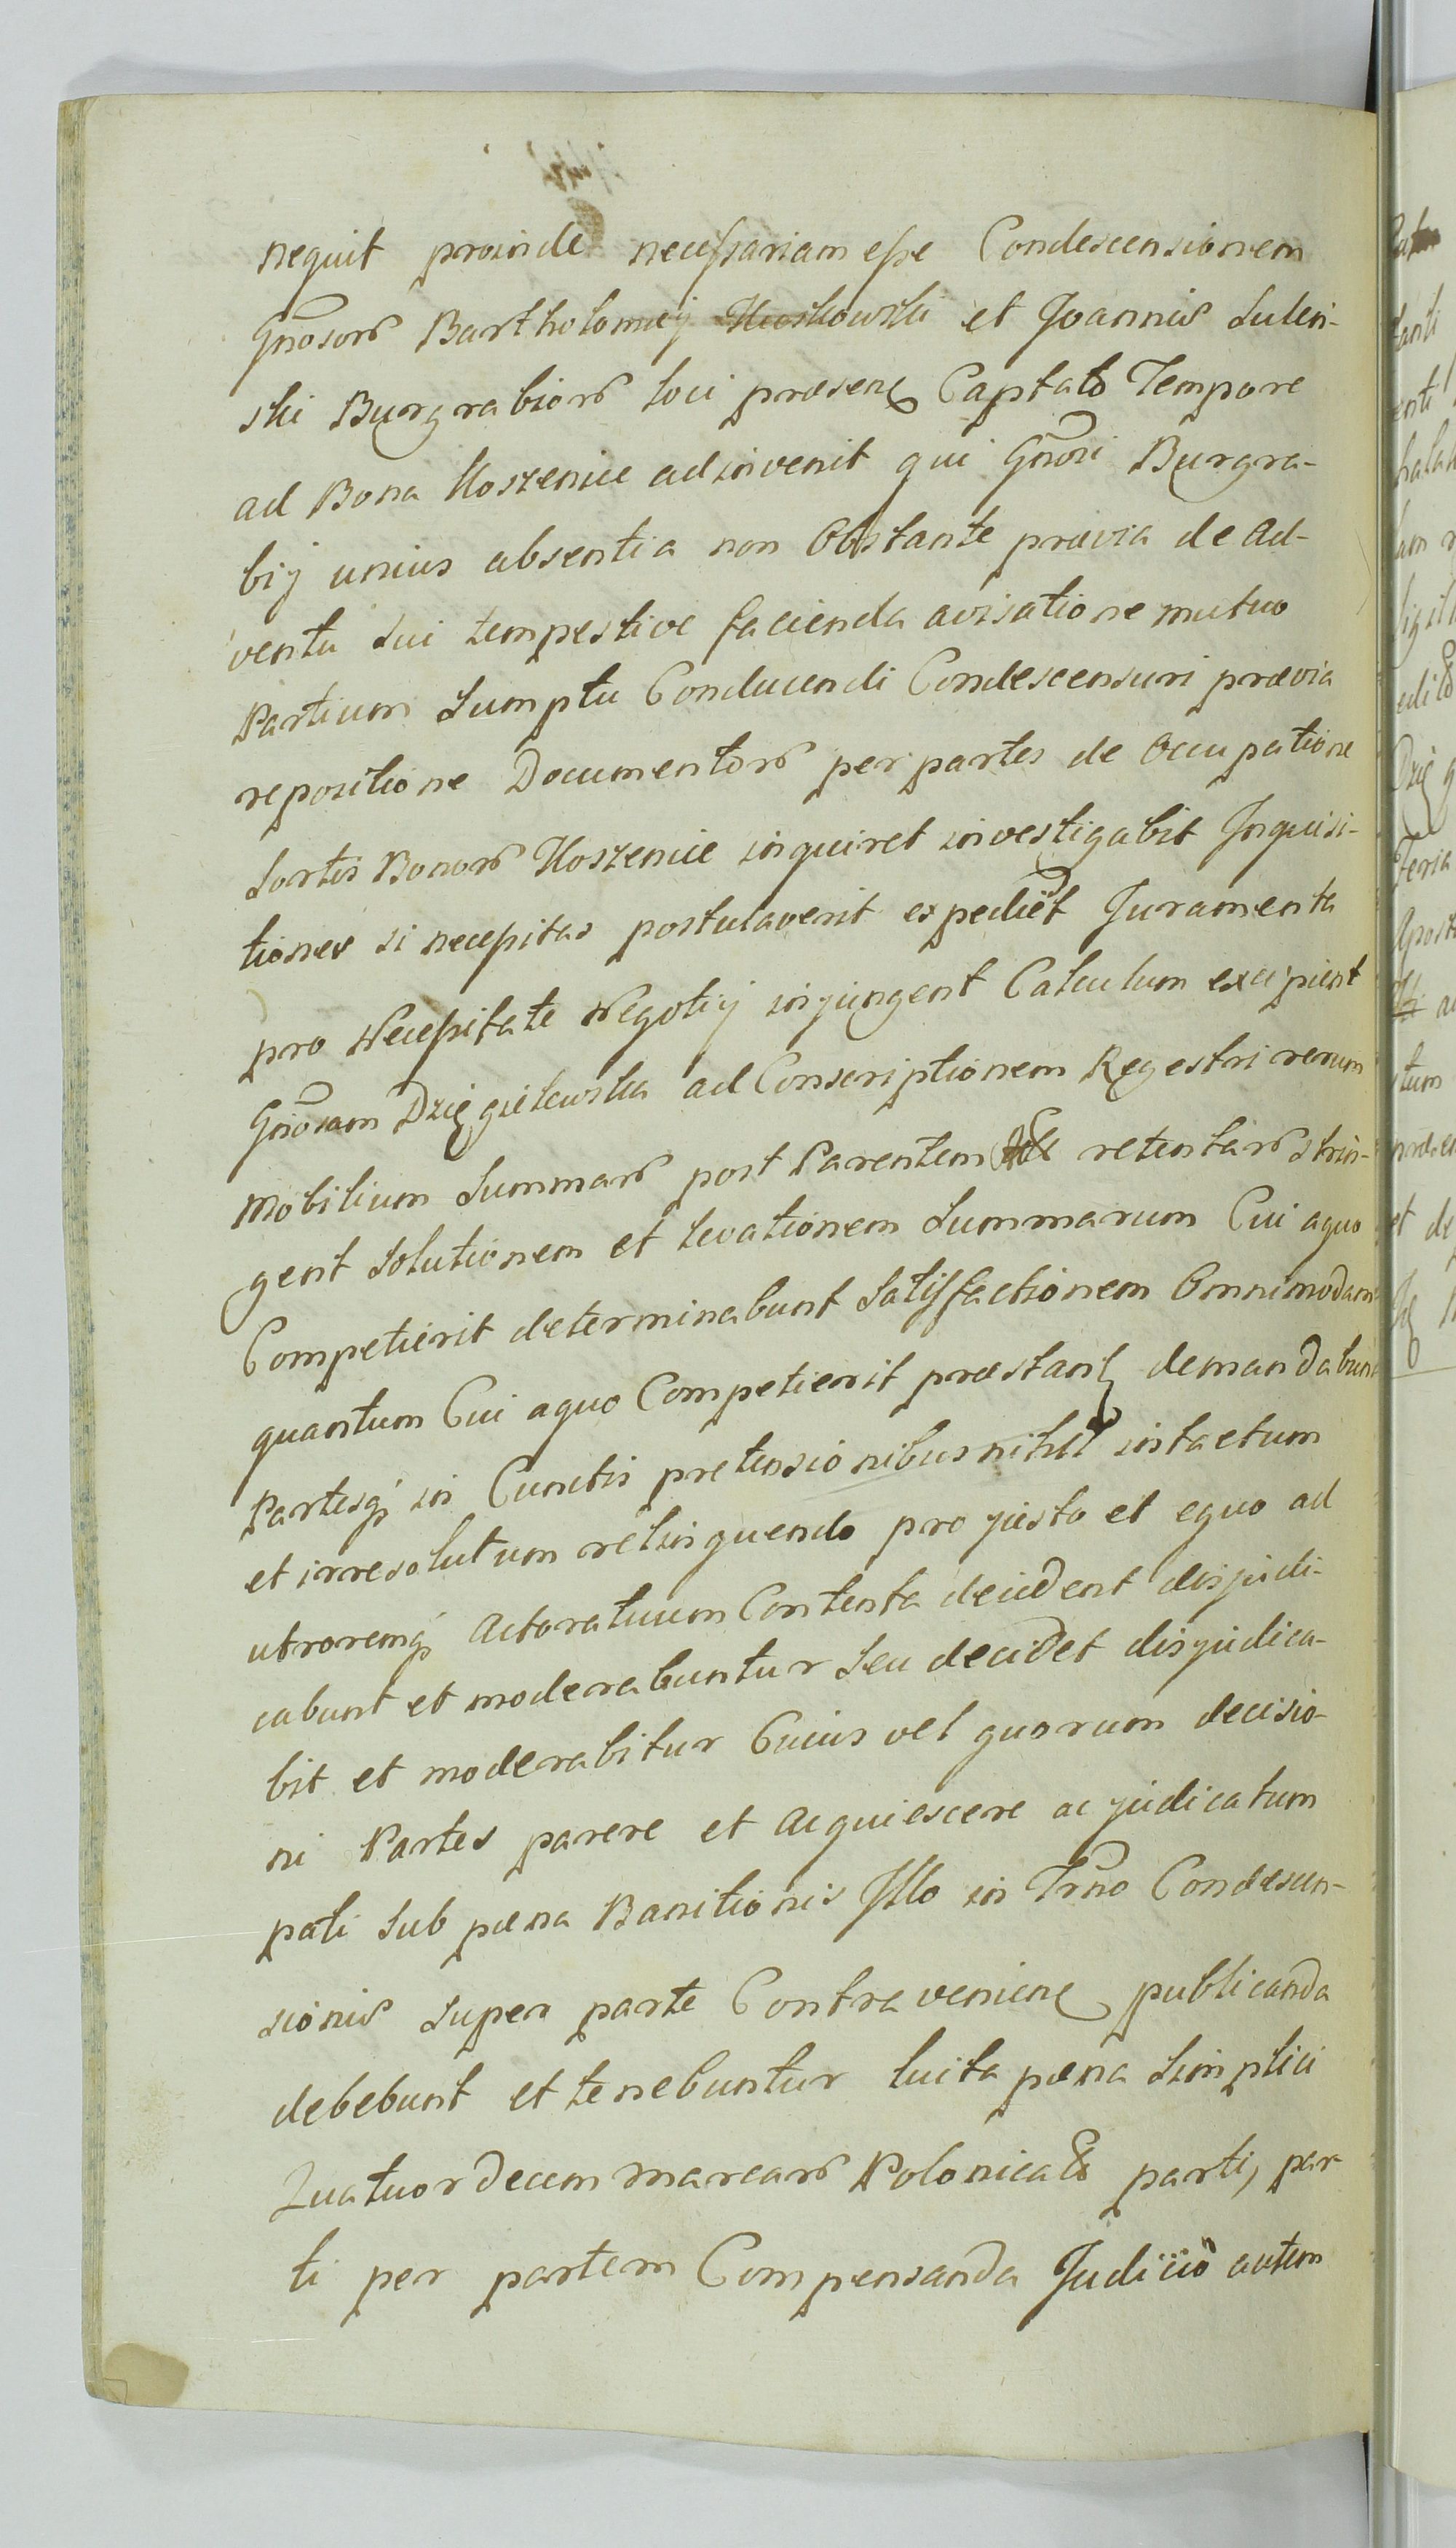 nequit proinde necessariam esse Condescensionem
Gnosor Bartholomæj et Joannis Sulen-
ski Burgrabior loci præsen Captato Tempore
ad Bona Koszenice adinvenit qui Gnosi Burgra-
bij unius absentia non Obstante prævia de ad-
ventu sui tempestive facienda avisatione mutuo
Partium Sumptu Conducendi Condescensuri prævia
repositione Documentor per partes de Occupatione
Sortis Bonor Koszenice inquiret investigabit Inquisi-
tiones si necessitas postulaverit expediet Juramenta
pro Necessitate Negotij injungent Calculum excipient
Gnosam Dzięgielewska ad Conscriptionem Regestri rerum
Mobilium Summar post Parentem retentar strin-
gent Solutionem et levationem Summarum Cui aquo
Competierit determinabunt Satisfactionem Omnimodam
quantum Cui aquo Competierit præstan demandabunt
Partesq in Cunctis pretensionibus nihil intactum
et irresolutum relinquendo pro justo et equo ad
utroremq Actoratuum Contenta decident disjudi-
cabunt et moderabuntur Seu decidet disjudica-
bit et moderabitur Cuius vel quorum decisio-
ni Partes parere et acquiescere ac judicatum
pati Sub pæna Banitionis Illo in Trno Condescen-
sionis super parte Contravenien publicanda
debebunt et tenebuntur luita pæna Simplici
Quatuordecem marcar Polonical parti, par-
ti per partem Compensanda Judicio autem